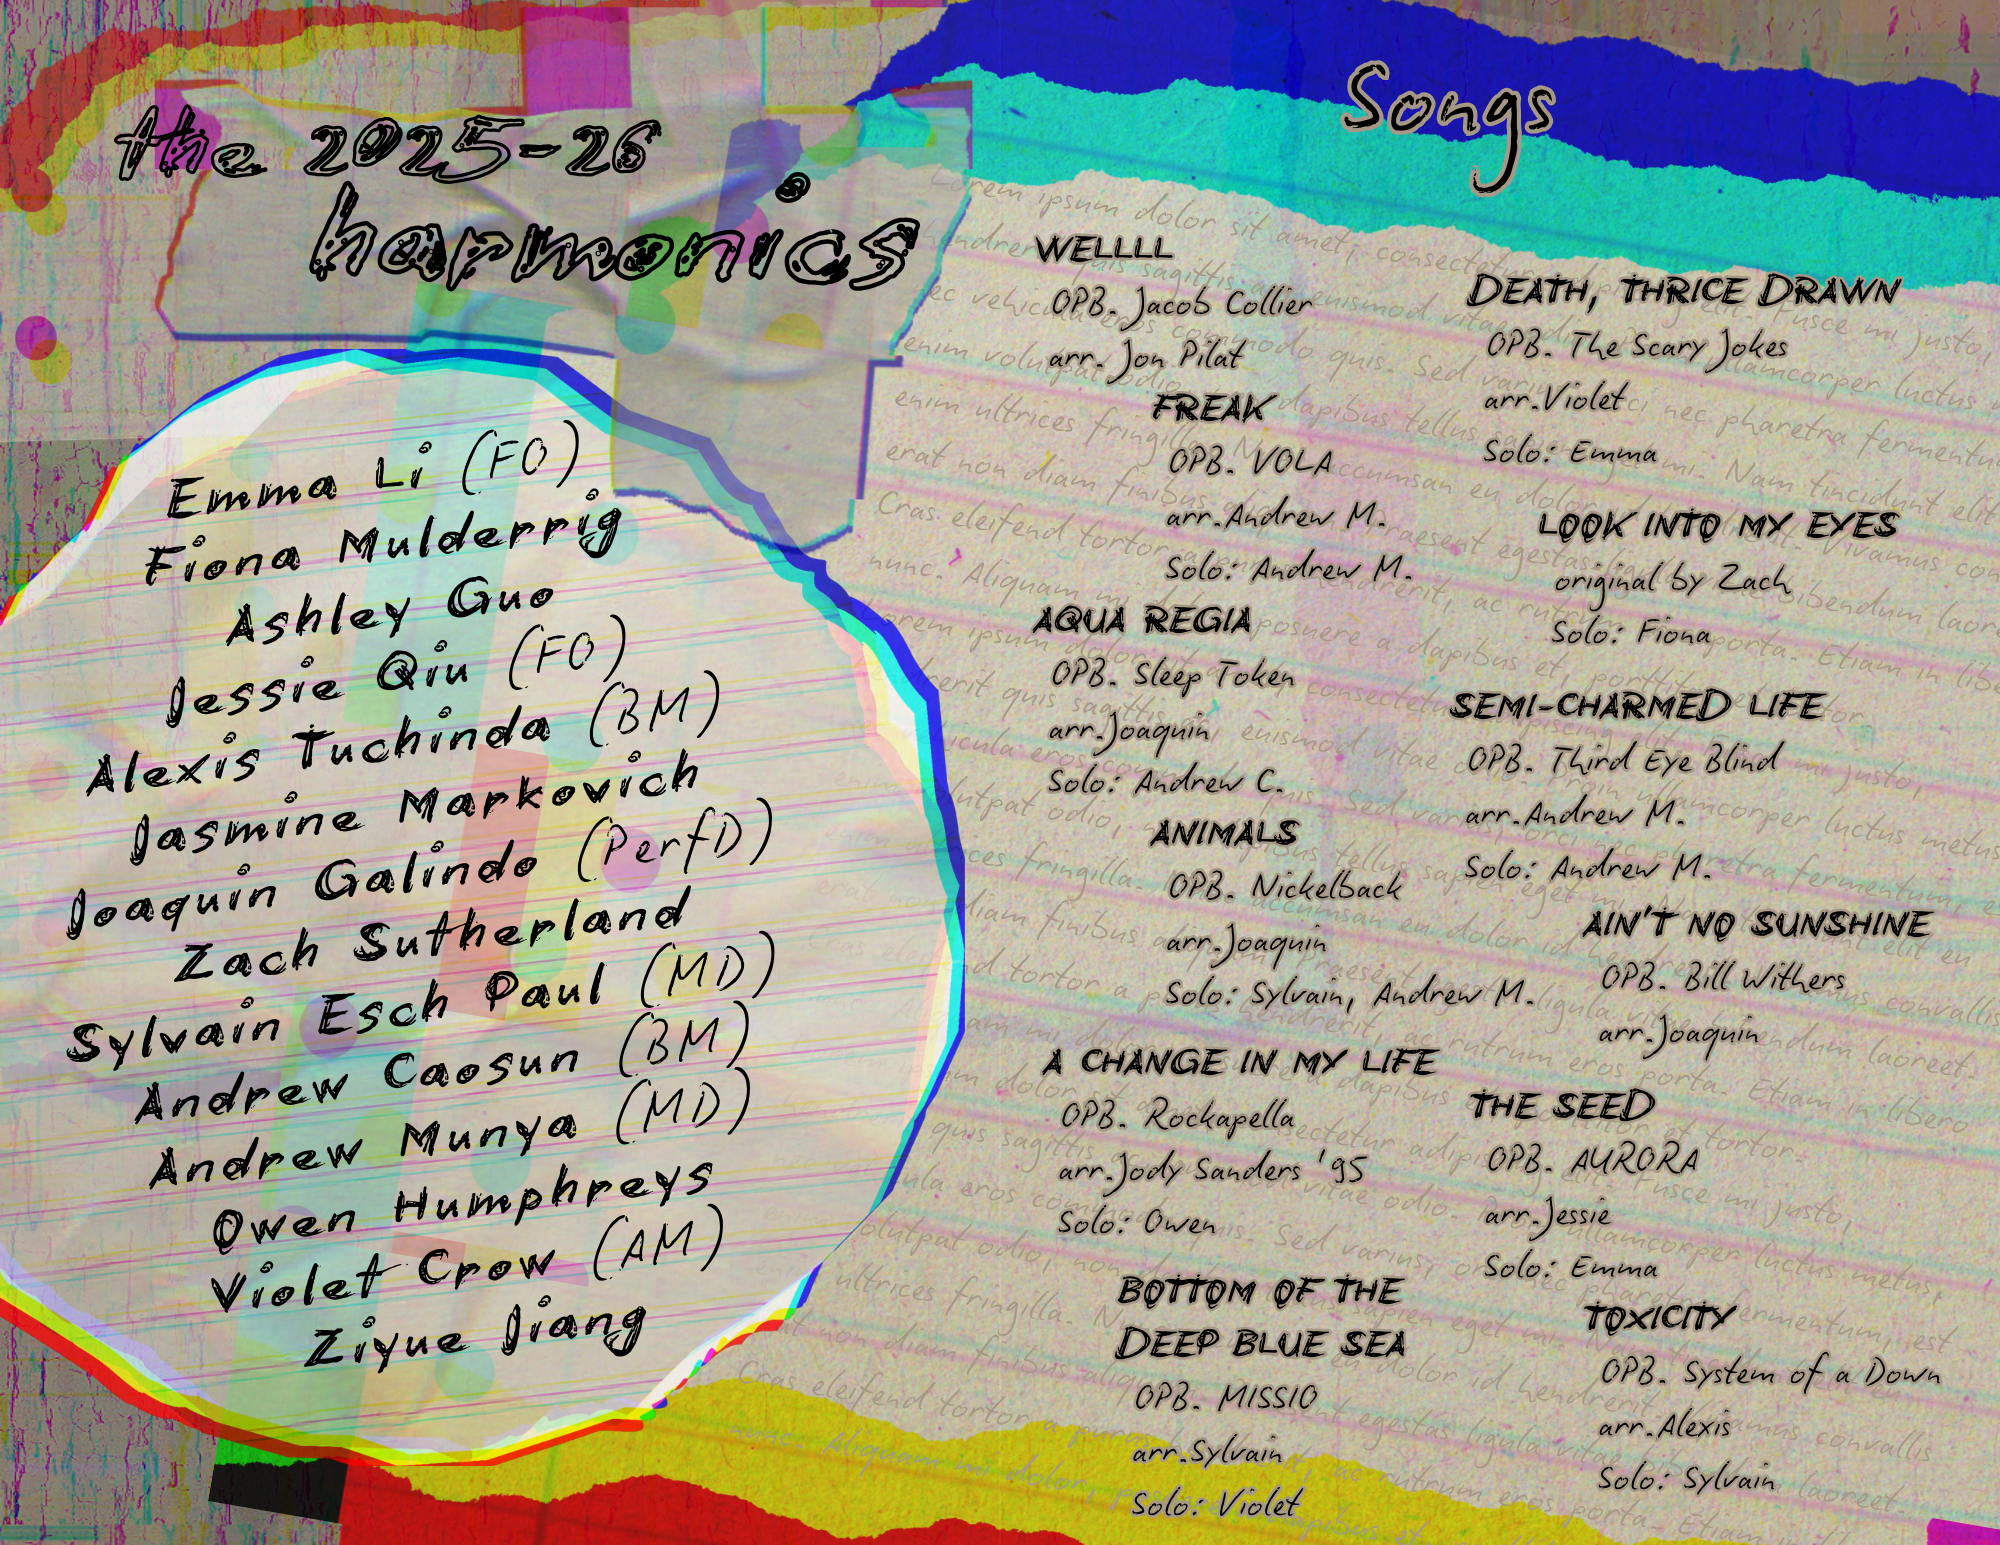 the 2025-26
harmonics
Emma Li (FO)
Fiona Mulderrig
Ashley Guo
Jessie Qiu (FO)
Alexis Tuchinda (BM)
Jasmine Markovich
Joaquin Galindo (PerfD)
Zach Sutherland
Sylvain Esch Paul (MD)
Andrew Caosun (BM)
Andrew Munya (MD)
Owen Humphreys
Violet Crow (AM)
Ziyue Jiang
Songs
WELLLL
OPB. Jacob Collier
arr. Jon Pilat
FREAK
OPB. VOLA
arr. Andrew M.
Solo: Andrew M.
AQUA REGIA
OPB. Sleep Token
arr. Joaquin
Solo: Andrew C.
ANIMALS
OPB. Nickelback
arr. Joaquin
Solo: Sylvain, Andrew M.
A CHANGE IN MY LIFE
OPB. Rockapella
arr. Jody Sanders '95
Solo: Owen
BOTTOM OF THE
DEEP BLUE SEA
OPB. MISSIO
arr. Sylvain
Solo: Violet
DEATH, THRICE DRAWN
OPB. The Scary Jokes
arr. Violet
Solo: Emma
LOOK INTO MY EYES
original by Zach
Solo: Fiona
SEMI-CHARMED LIFE
OPB. Third Eye Blind
arr. Andrew M.
Solo: Andrew M.
AIN'T NO SUNSHINE
OPB. Bill Withers
arr. Joaquin
THE SEED
OPB. AURORA
arr. Jessie
Solo: Emma
TOXICITY
OPB. System of a Down
arr. Alexis
Solo: Sylvain